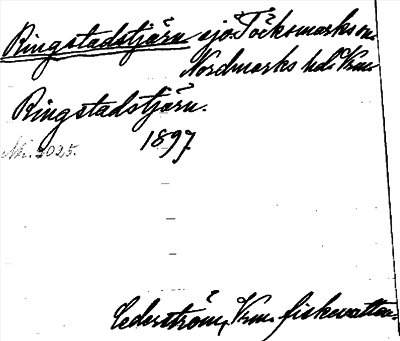 Ringstadstjärn sjö. Töcksmarks sn.
Nordmarks hd. Vrm.
Ringstadstjärn.
1897.
Nr. 2025.
Cederström, Vrm. fiskevatten.